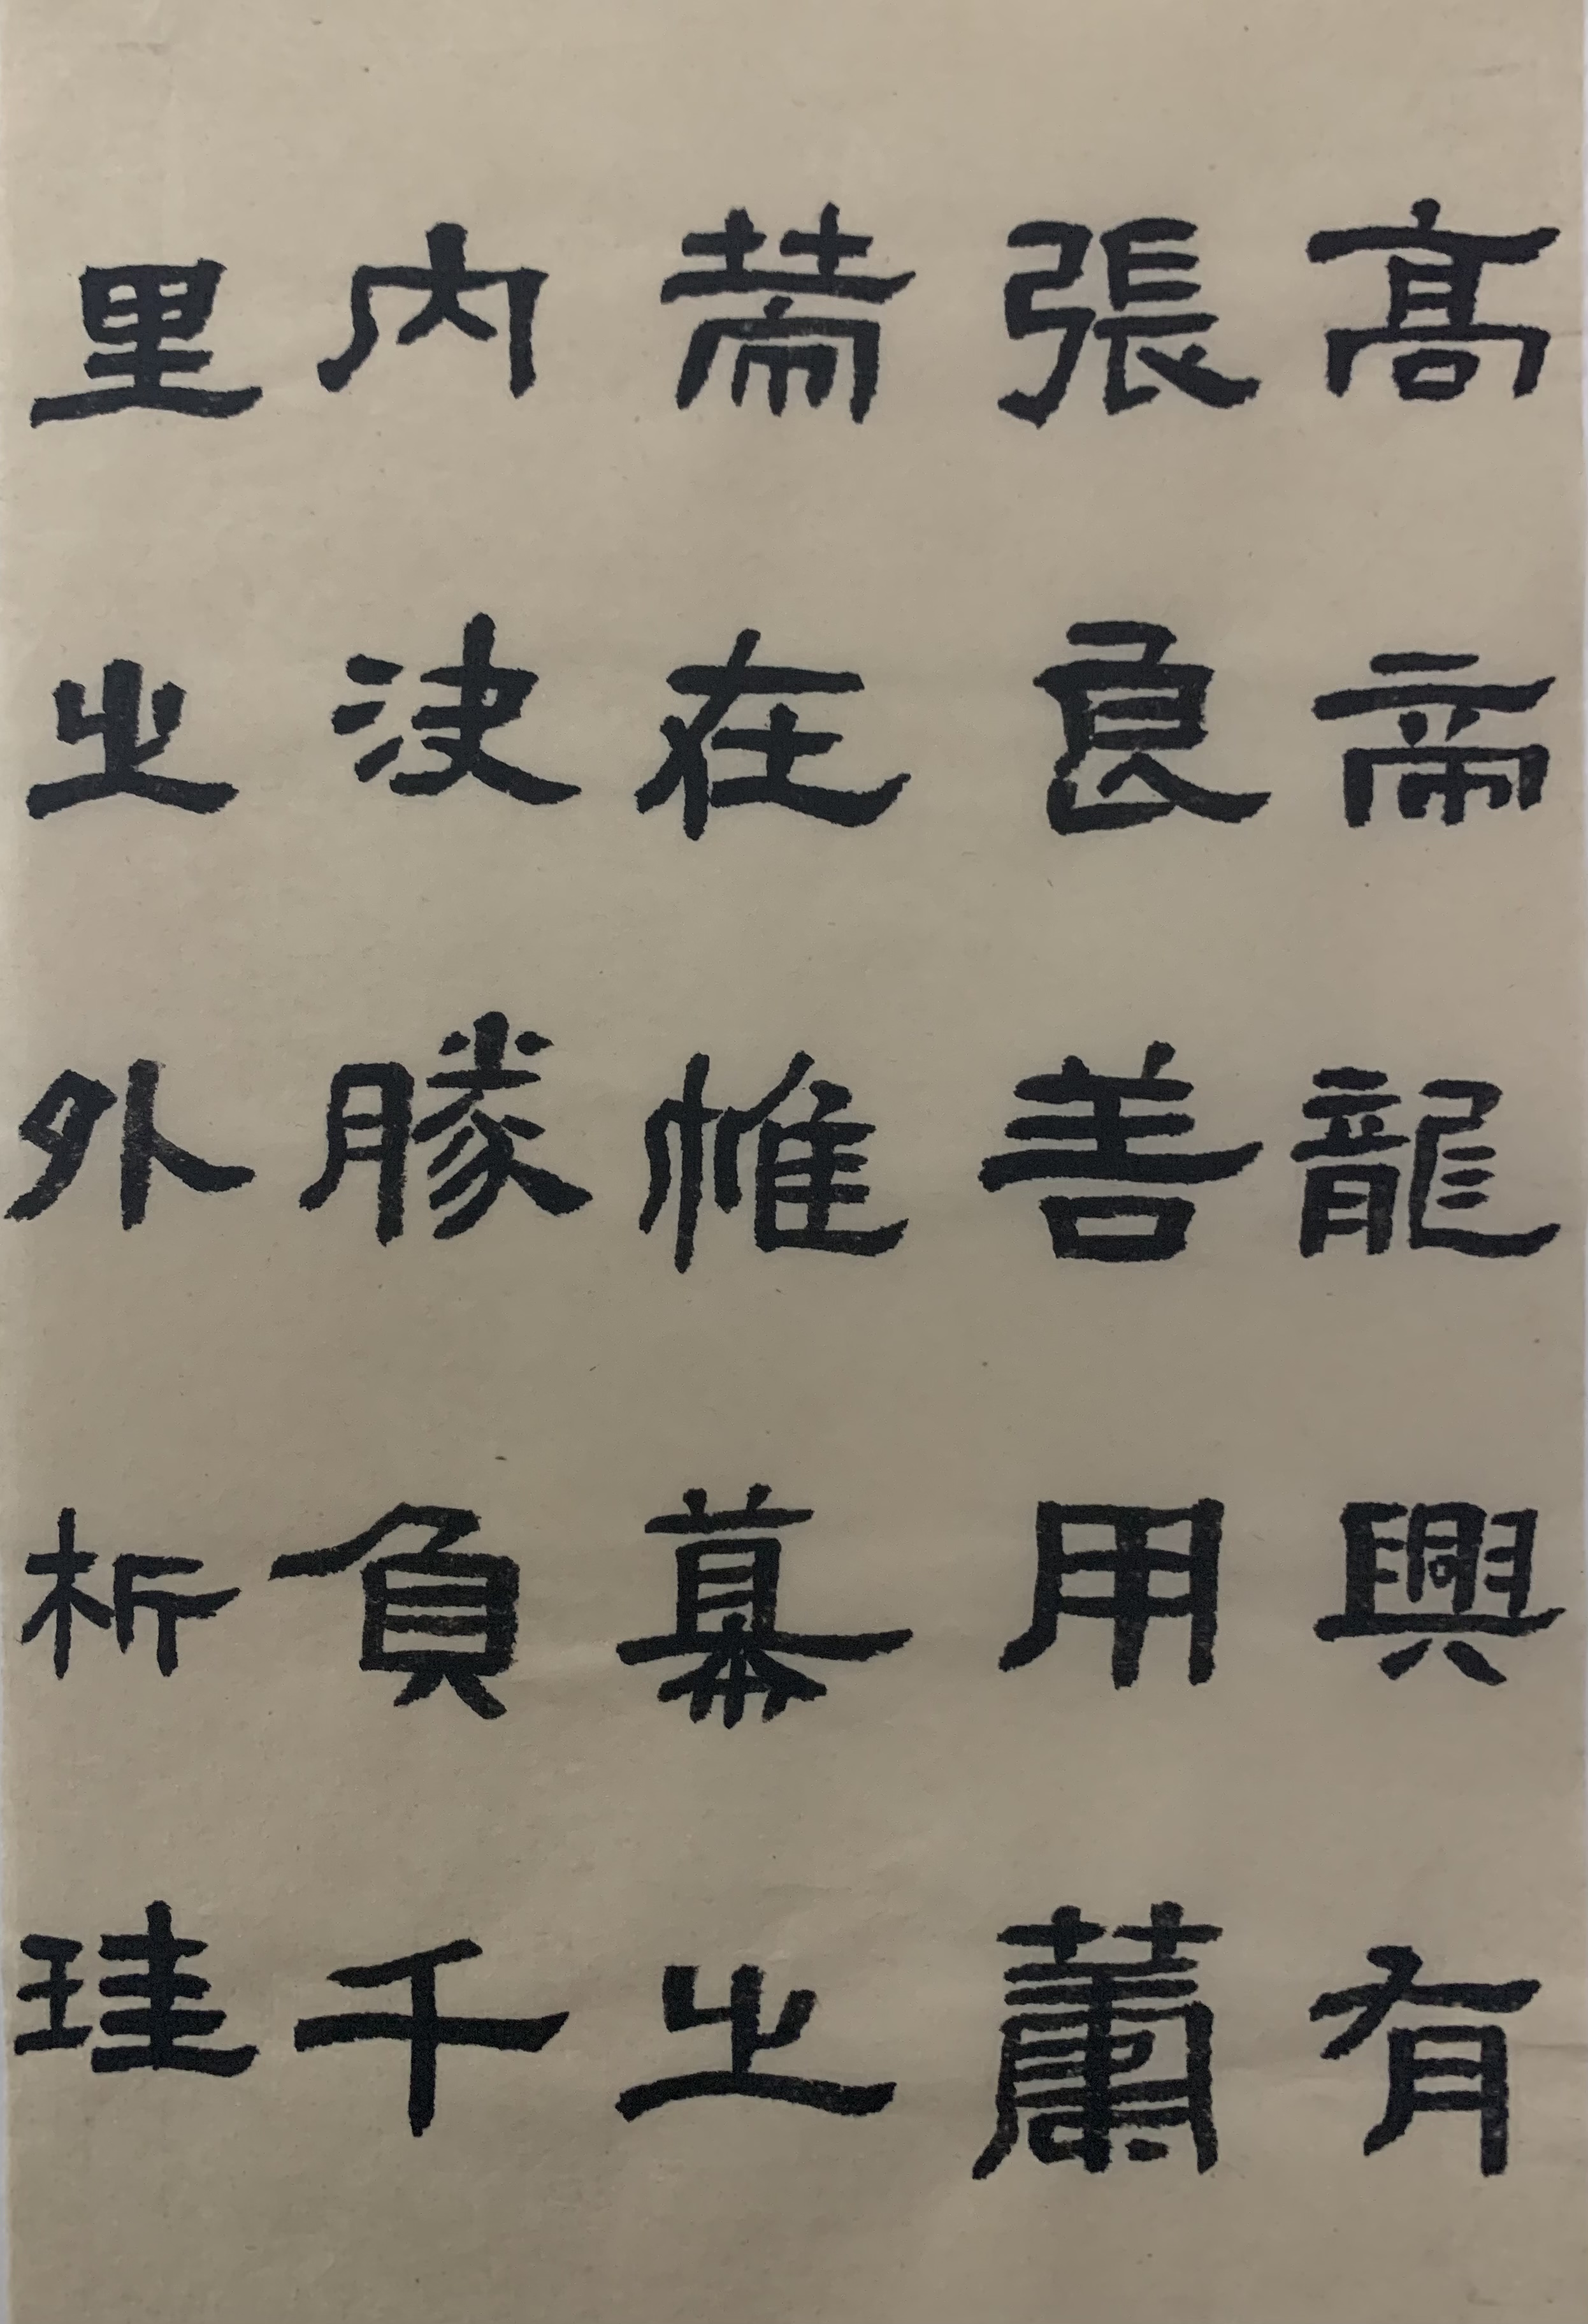 高帝龍興有
張良善用籌
策在帷幕之
內決勝負千
里之外析珪